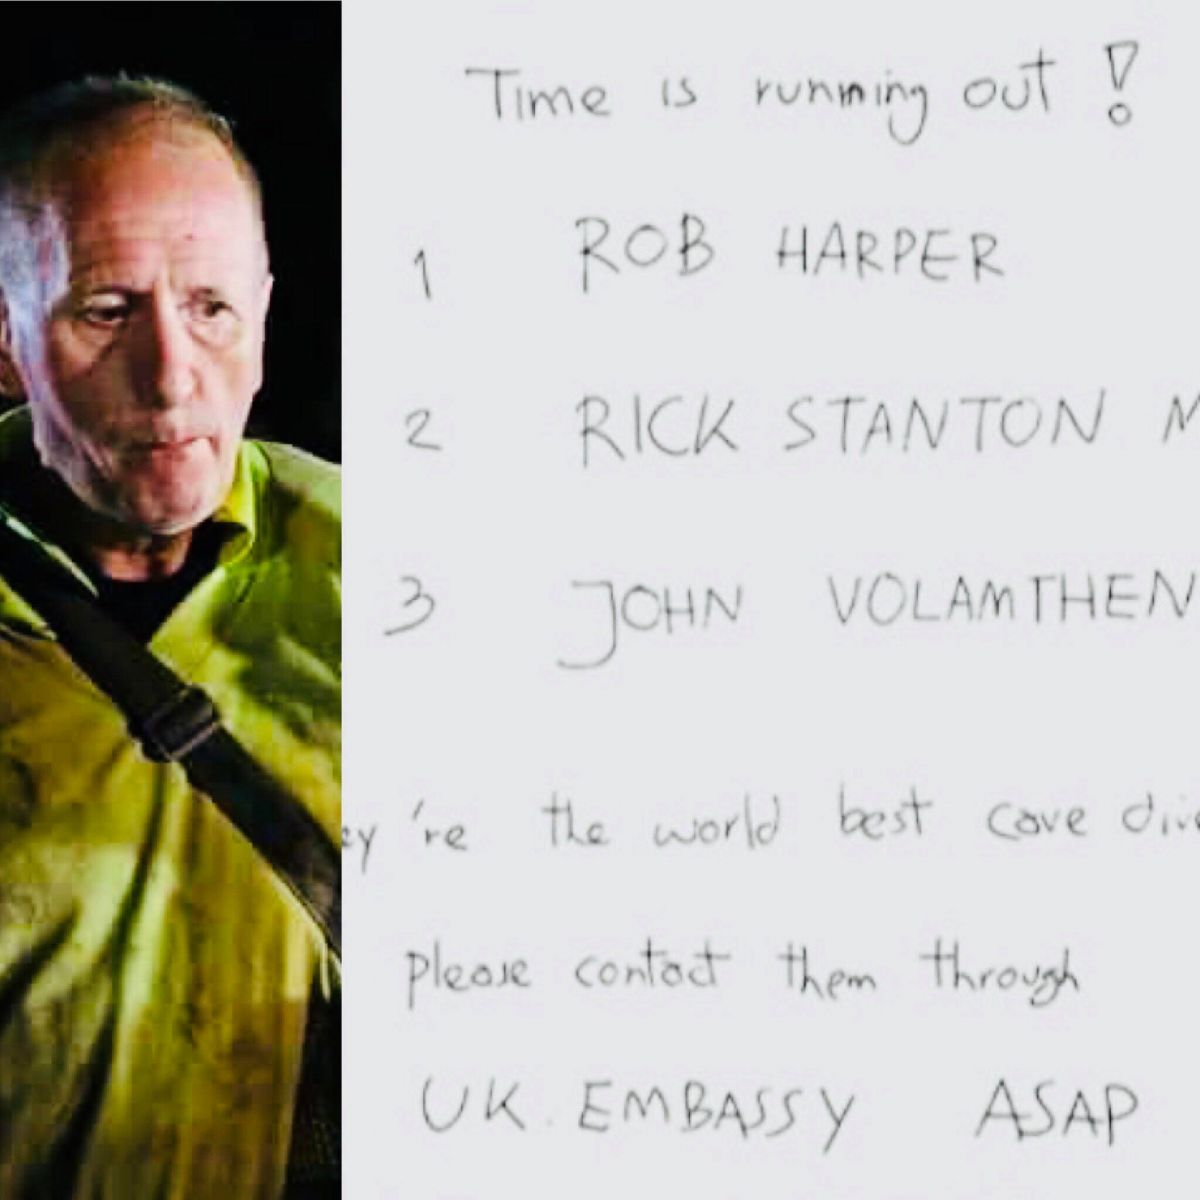 Time is running out !
1 ROB HARPER
2 RICK STANTON M
3 JOHN VOLAMTHEN
ey 're the world best cave dive
please contact them through
UK. EMBASSY ASAP